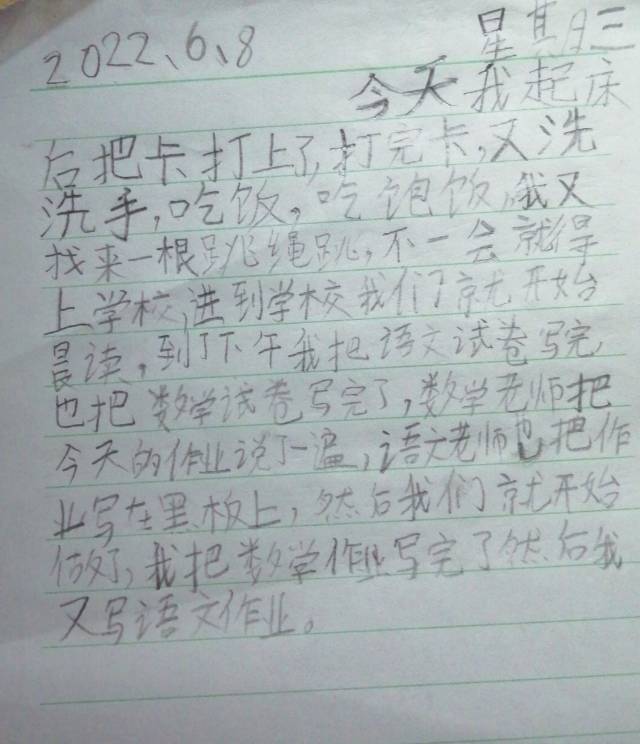 2022、6、8 星期三
今天我起床
后把卡打上了,打完卡,又洗
洗手,吃饭。吃饱饭,我又
找来一根跳绳跳,不一会就得
上学校,进到学校我们就开始
晨读,到了下午我把语文试卷写完,
也把数学试卷写完了,数学老师把
今天的作业说了一遍,语文老师也把作
业写在黑板上,然后我们就开始
做了,我把数学作业写完了然后我
又写语文作业。